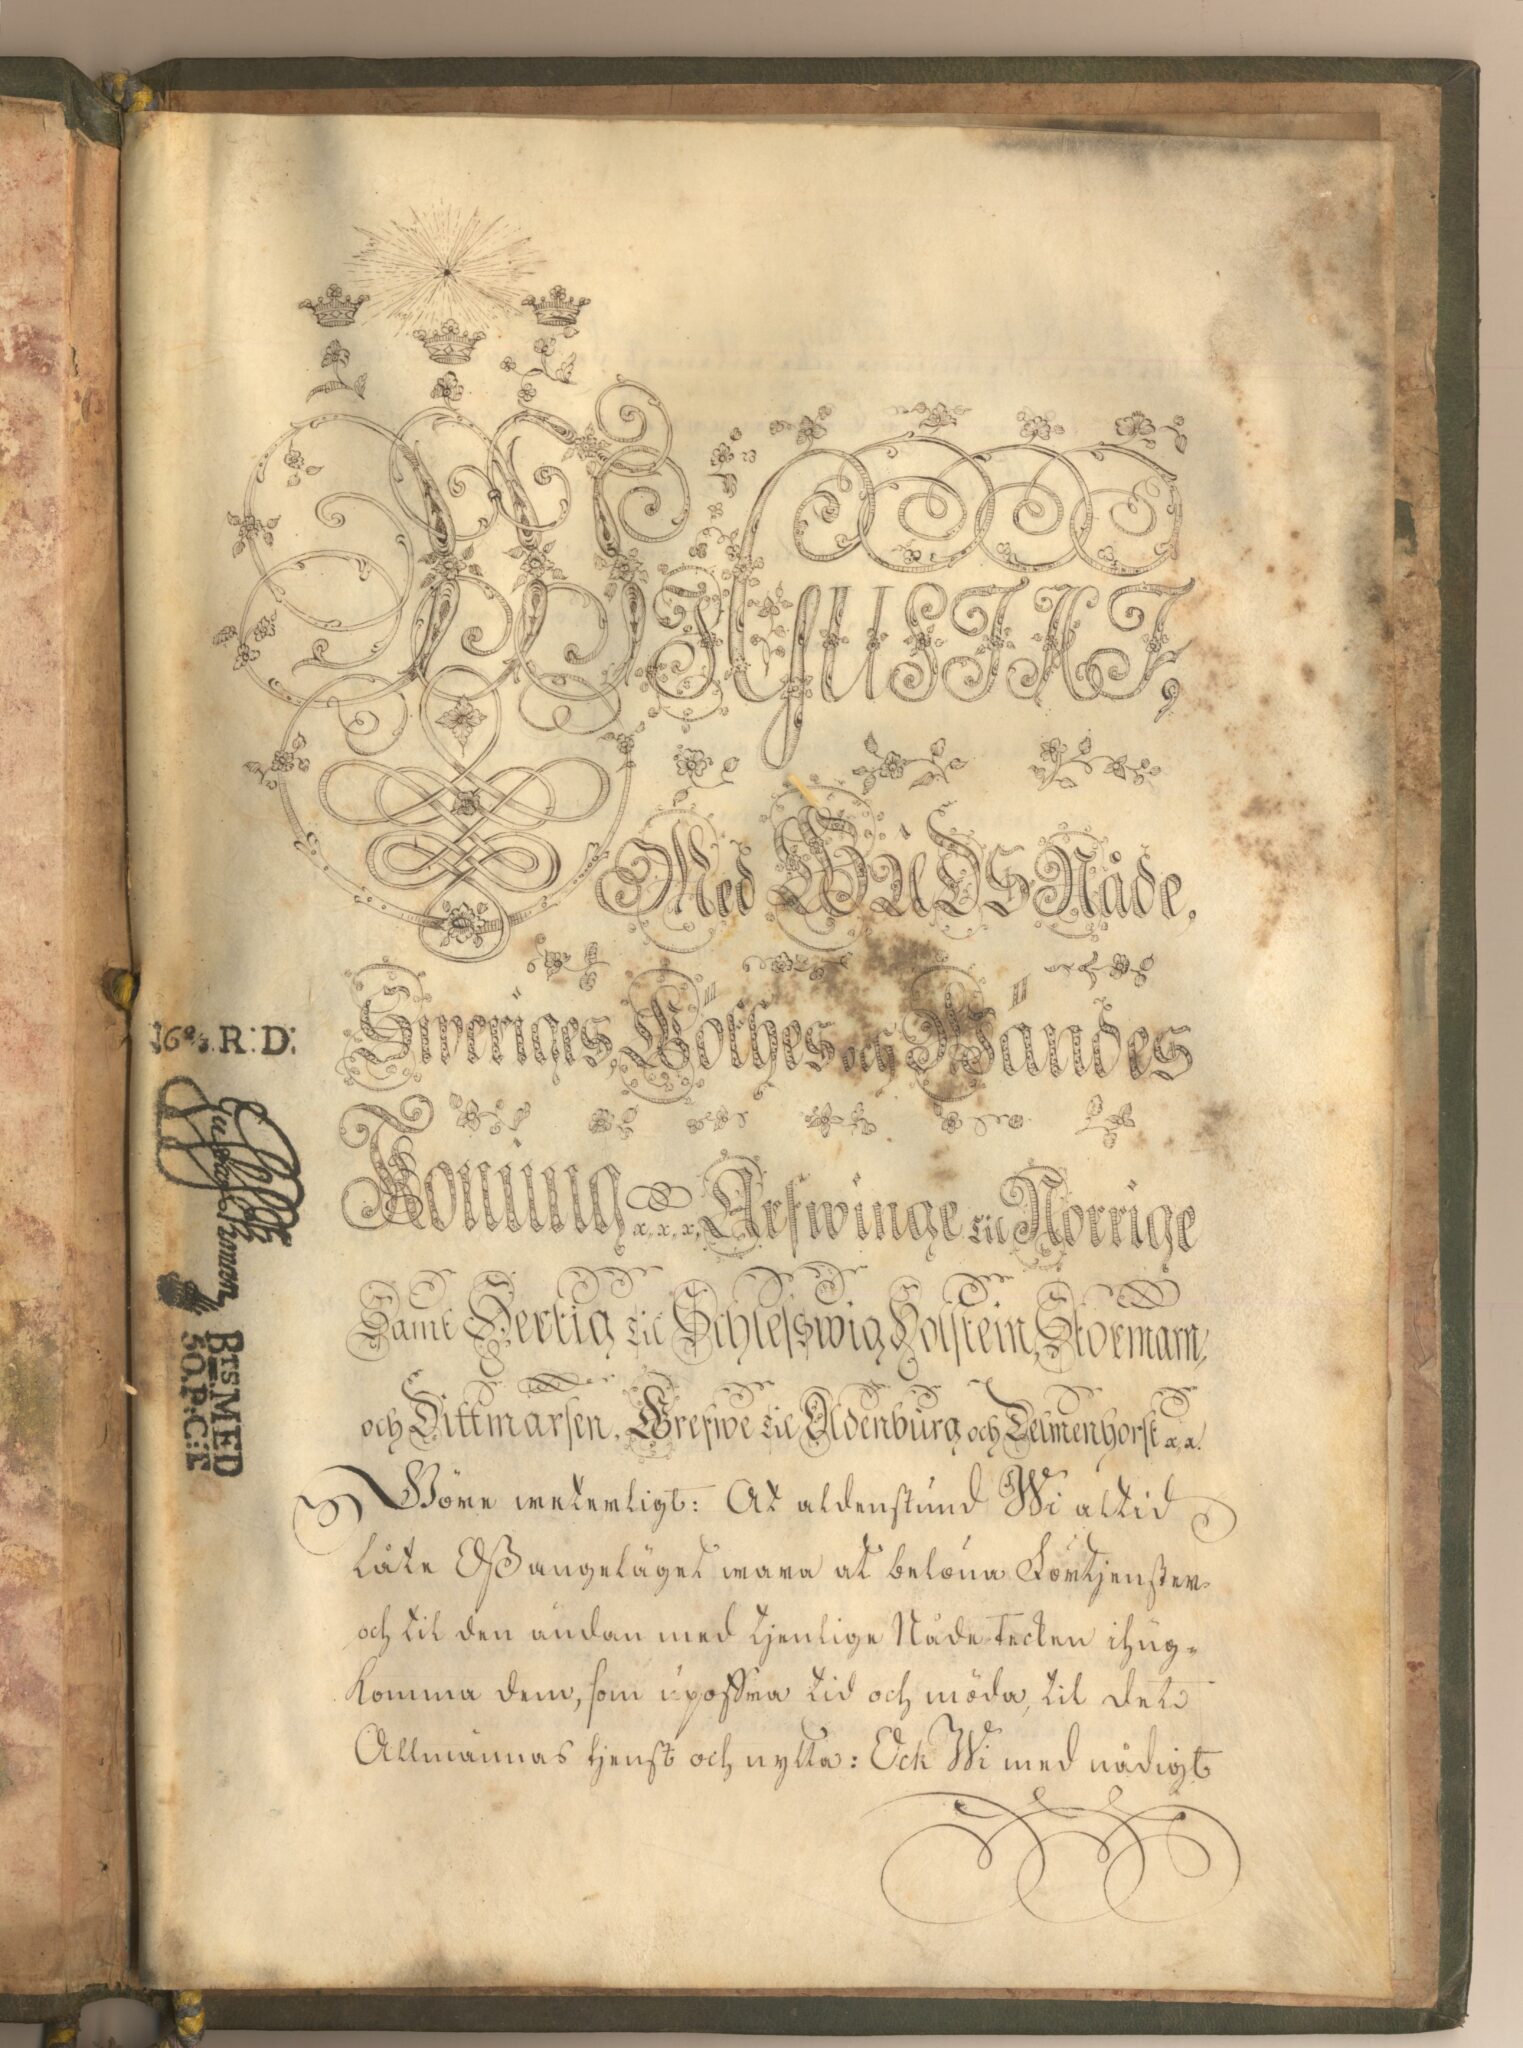 Wi GUSTAF,
Med GUDS Nåde,
Sweriges, Göthes och Wändes
Konung x.x.x. Arfwinge til Norrige
Samt Hertig til Schleswig Holstein, Stormarn,
och Dittmarsen, Grefwe til Oldenburg och Delmenhorst x.x.
Göre weterligt: At aldenstund Wi altid
låte Oß angeläget wara at belöna Förtjenster
och til den ändan med tjenlige Nåde-tecken ihug-
komma dem, som upoffra tid och möda, til det
Allmännas tjenst och nytta: Ock Wi med nådigt
R:D:
BTS MED
50.P:C:E